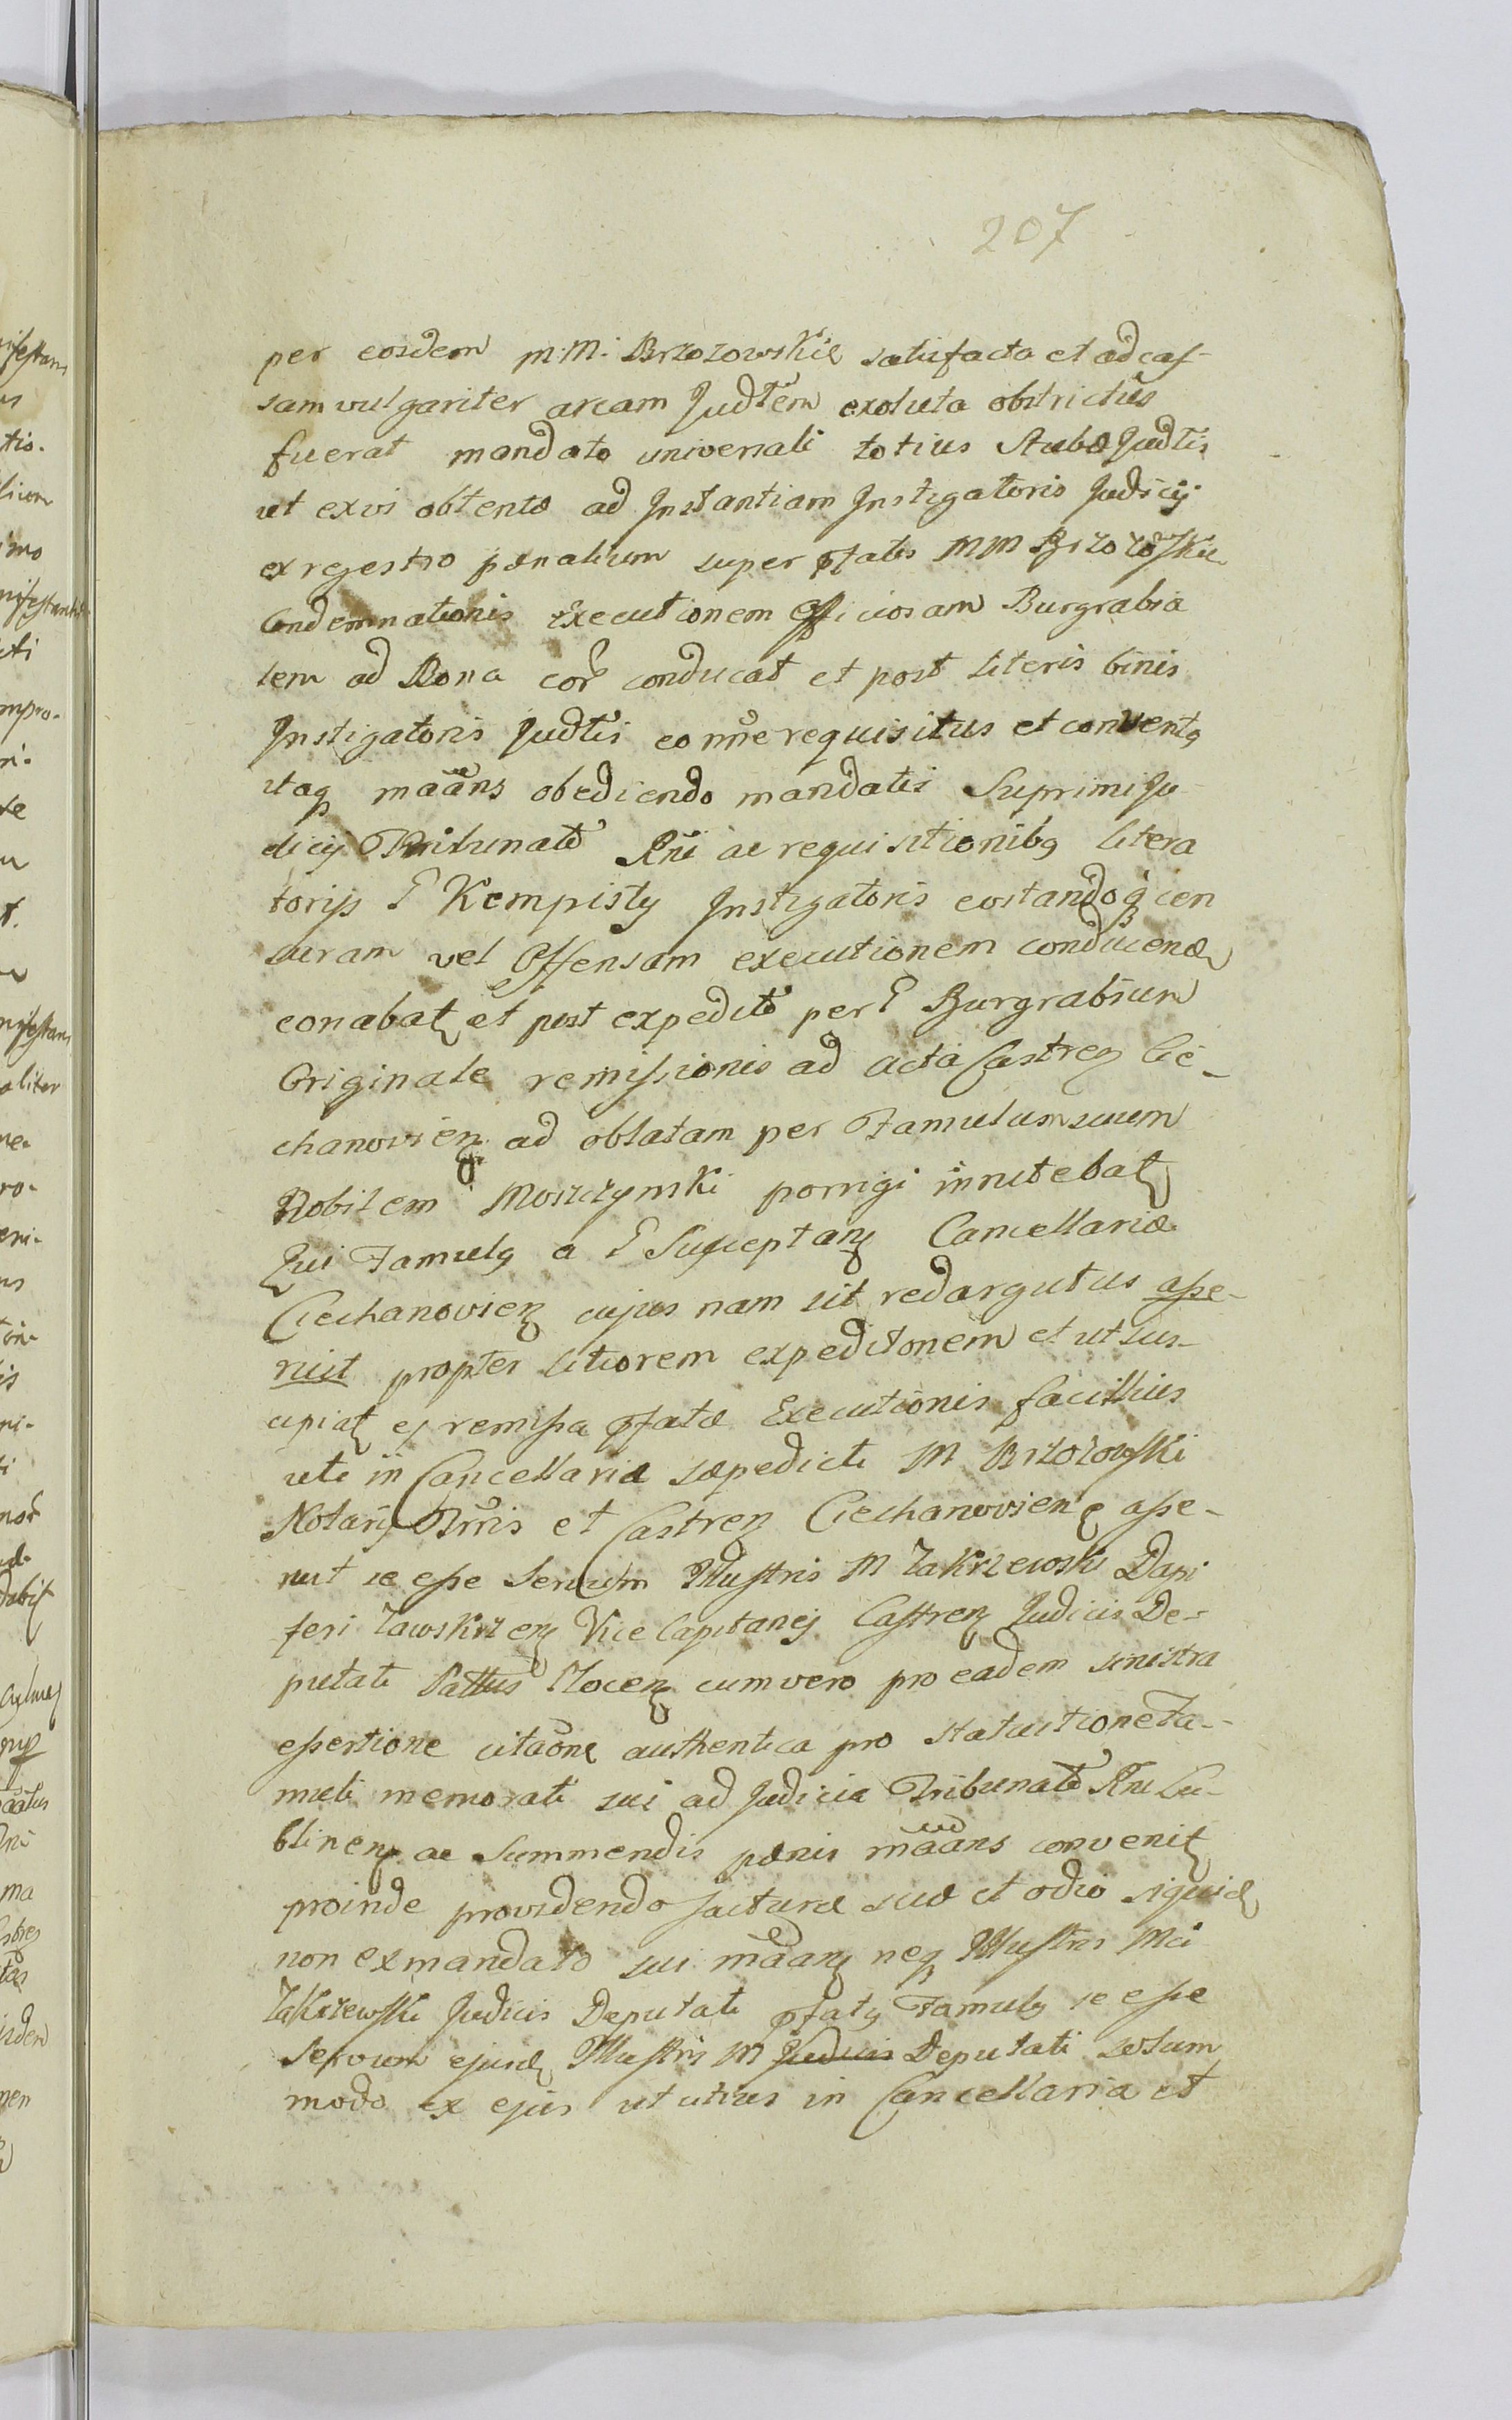 207
per eosdem M. M. Brzozowskie satisfacta et ad cas-
sam vulgariter arcam Judtem exoluta obstrictus
fuerat mandato universali totius Stubæ Judtis
ut ex vi obtentæ ad Instantiam Instigatoris Judicij
ex regestro pænalium super pfatis MM Brzozowskie
Condemnationis Executionem officiosam Burgrabia
lem ad Bona eor conducat et post literis binis
Instigatoris Judtis eo nne requisitus et conventq
itaq maans obediendo mandatis Supremi Ju
dicij Tribunalt Rni ac requisitionibq litera
torijs G Kempisty Instigatoris evitandoq cen
suram vel offensam executionem conducend
conabat et post expedit per G Burgrabium
Originale remissionis ad acta Castren Cie-
chanovien ad oblatam per Famulum suum
Nobilem Moszczynski porrigi innitebat
Qui Famulq a G Susceptan Cancellariæ
Ciechanovien cujus nam sit redargutus asse-
ruit propter citiorem expeditionem et ut sus-
cipiat ej remissa pfatæ Executionis facillius
uti in Cancellaria sæpedicti M Brzozowski
Notarij Trris et Castren Ciechanovien asse-
ruit se esse Servum Illustris M Zakrzewski Dapi
feri Zawskrzen Vice Capitanej Castren Judicis De-
putati Pattus Plocen cum vero pro eadem sinistra
essertione citaone authentica pro statuitione Fa-
muli memorati sui ad Judicia Tribunalt Rni Lu-
blinen ac summendis pænis maans convenit
proinde providendo jacturæ suæ et odio siquid
non ex mandato sui maans neq Illustris Mci
Zakrzewski Judicis Deputati pfatq Famulq se esse
Servum ejusd Illustris M Judicis Deputati solum
modo ex ejus ut citius in Cancellaria et